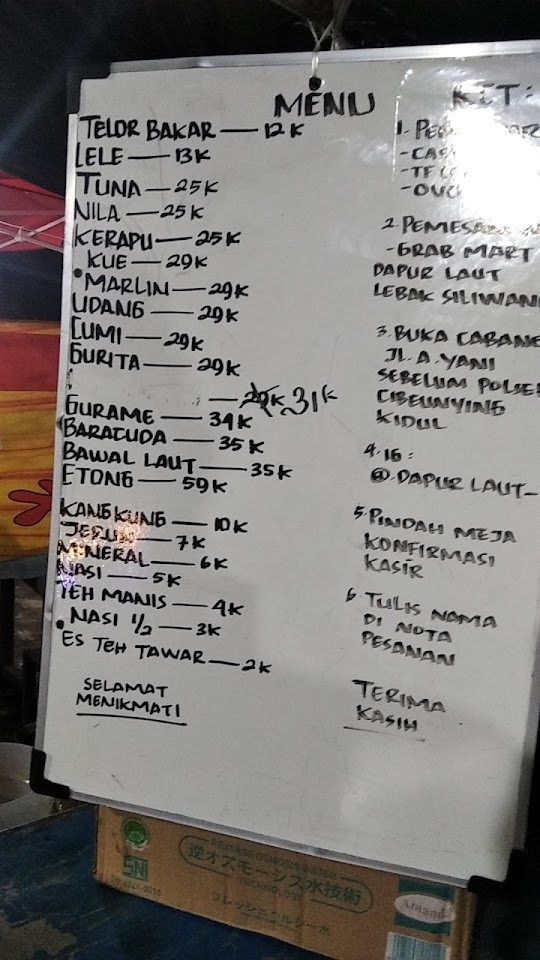 MENU
TELOR BAKAR — 12K
LELE — 13K
TUNA — 25K
NILA — 25K
KERAPU — 25K
KUE — 29K
• MARLIN — 29K
UDANG — 29K
CUMI — 29K
GURITA — 29K
— 29K 31K
GURAME — 34K
BARACUDA — 35K
BAWAL LAUT — 35K
ETONG — 59K
KANGKUNG — 10K
JERUK — 7K
MINERAL — 6K
NASI — 5K
TEH MANIS — 4K
• NASI 1/2 — 3K
ES TEH TAWAR — 2K
SELAMAT
MENIKMATI
KET:
1.
2. 
- GRAB MART
DAPUR LAUT
LEBAK SILIWANG
3. BUKA CABANG
JL. A. YANI
SEBELUM POLSE
CIBEUNYING
KIDUL
4. IG:
@.DAPUR LAUT-
5. PINDAH MEJA
KONFIRMASI
KASIR
6. TULIS NAMA
DI NOTA
PESANAN
TERIMA
KASIH
SNI
REVERSE OSMOSIS WATER
逆オズモーシス水技術
TECHNOLOGY
フレッシュヘルシー水